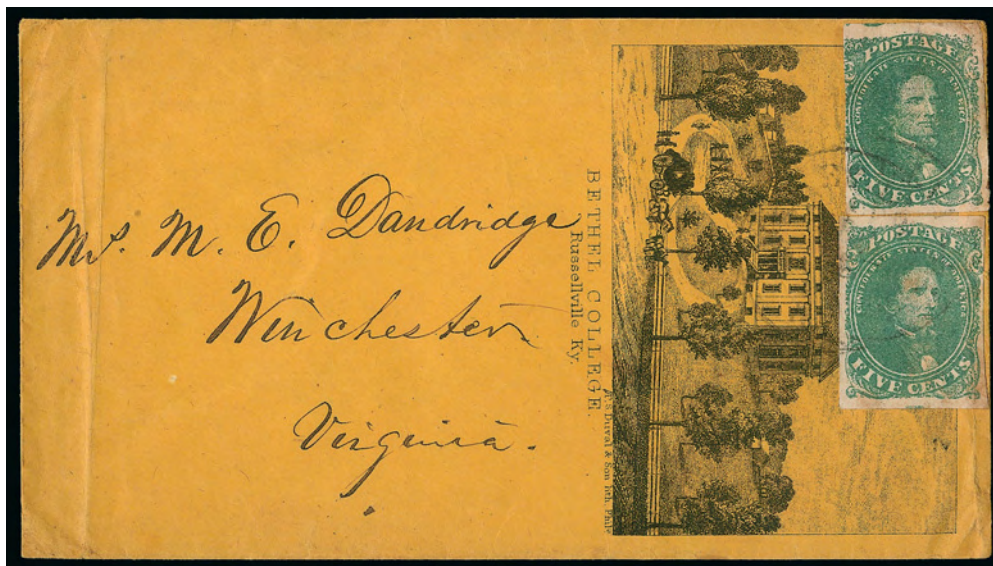 Mr. M. E. Dandridge
Winchester
Virginia.
BETHEL COLLEGE.
Russellville Ky.
Duval & Son lith. Phila
POSTAGE
CONFEDERATE STATES OF AMERICA
FIVE CENTS
POSTAGE
CONFEDERATE STATES OF AMERICA
FIVE CENTS